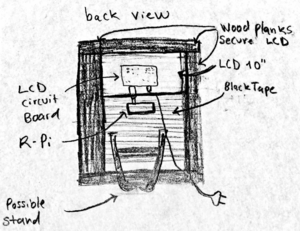 back view
Wood planks
Secure LCD
LCD 10"
LCD
circuit
Board
Black Tape
R-Pi
Possible
stand